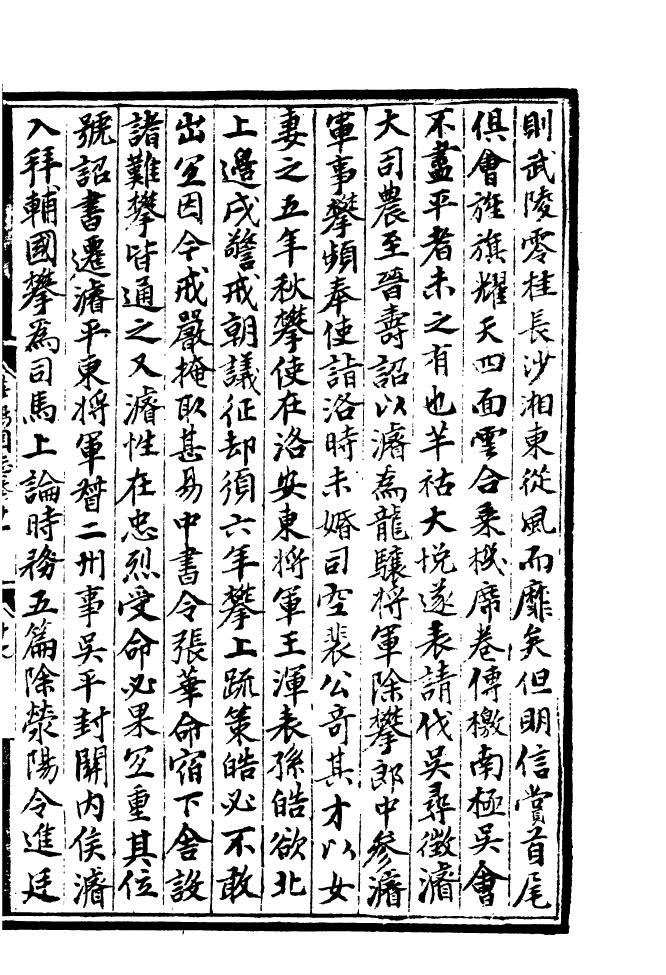 則武陵零桂長沙湘東從風而靡矣但明信賞首尾
俱會旌旗耀天四面雲合乗機席卷傳檄南極吳會
不盡平者未之有也羊祜大悅遂表請伐吳尋徵濬
大司農至晉壽詔以濬為龍驤将軍除攀郎中參濬
軍事攀頻奉使詣洛時未婚司空裴公奇其才以女
妻之五年秋攀使在洛安東将軍王渾表孫皓欲北
上邊戍警戒朝議征却須六年攀上疏策皓必不敢
出宜因今戒嚴掩取甚易中書令張華命宿下舍設
諸難攀皆通之又濬性在忠烈受命必果宜重其位
號詔書遷濬平東将軍督二州事吳平封關内侯濬
入拜輔國攀為司馬上論時務五篇除滎陽令進廷